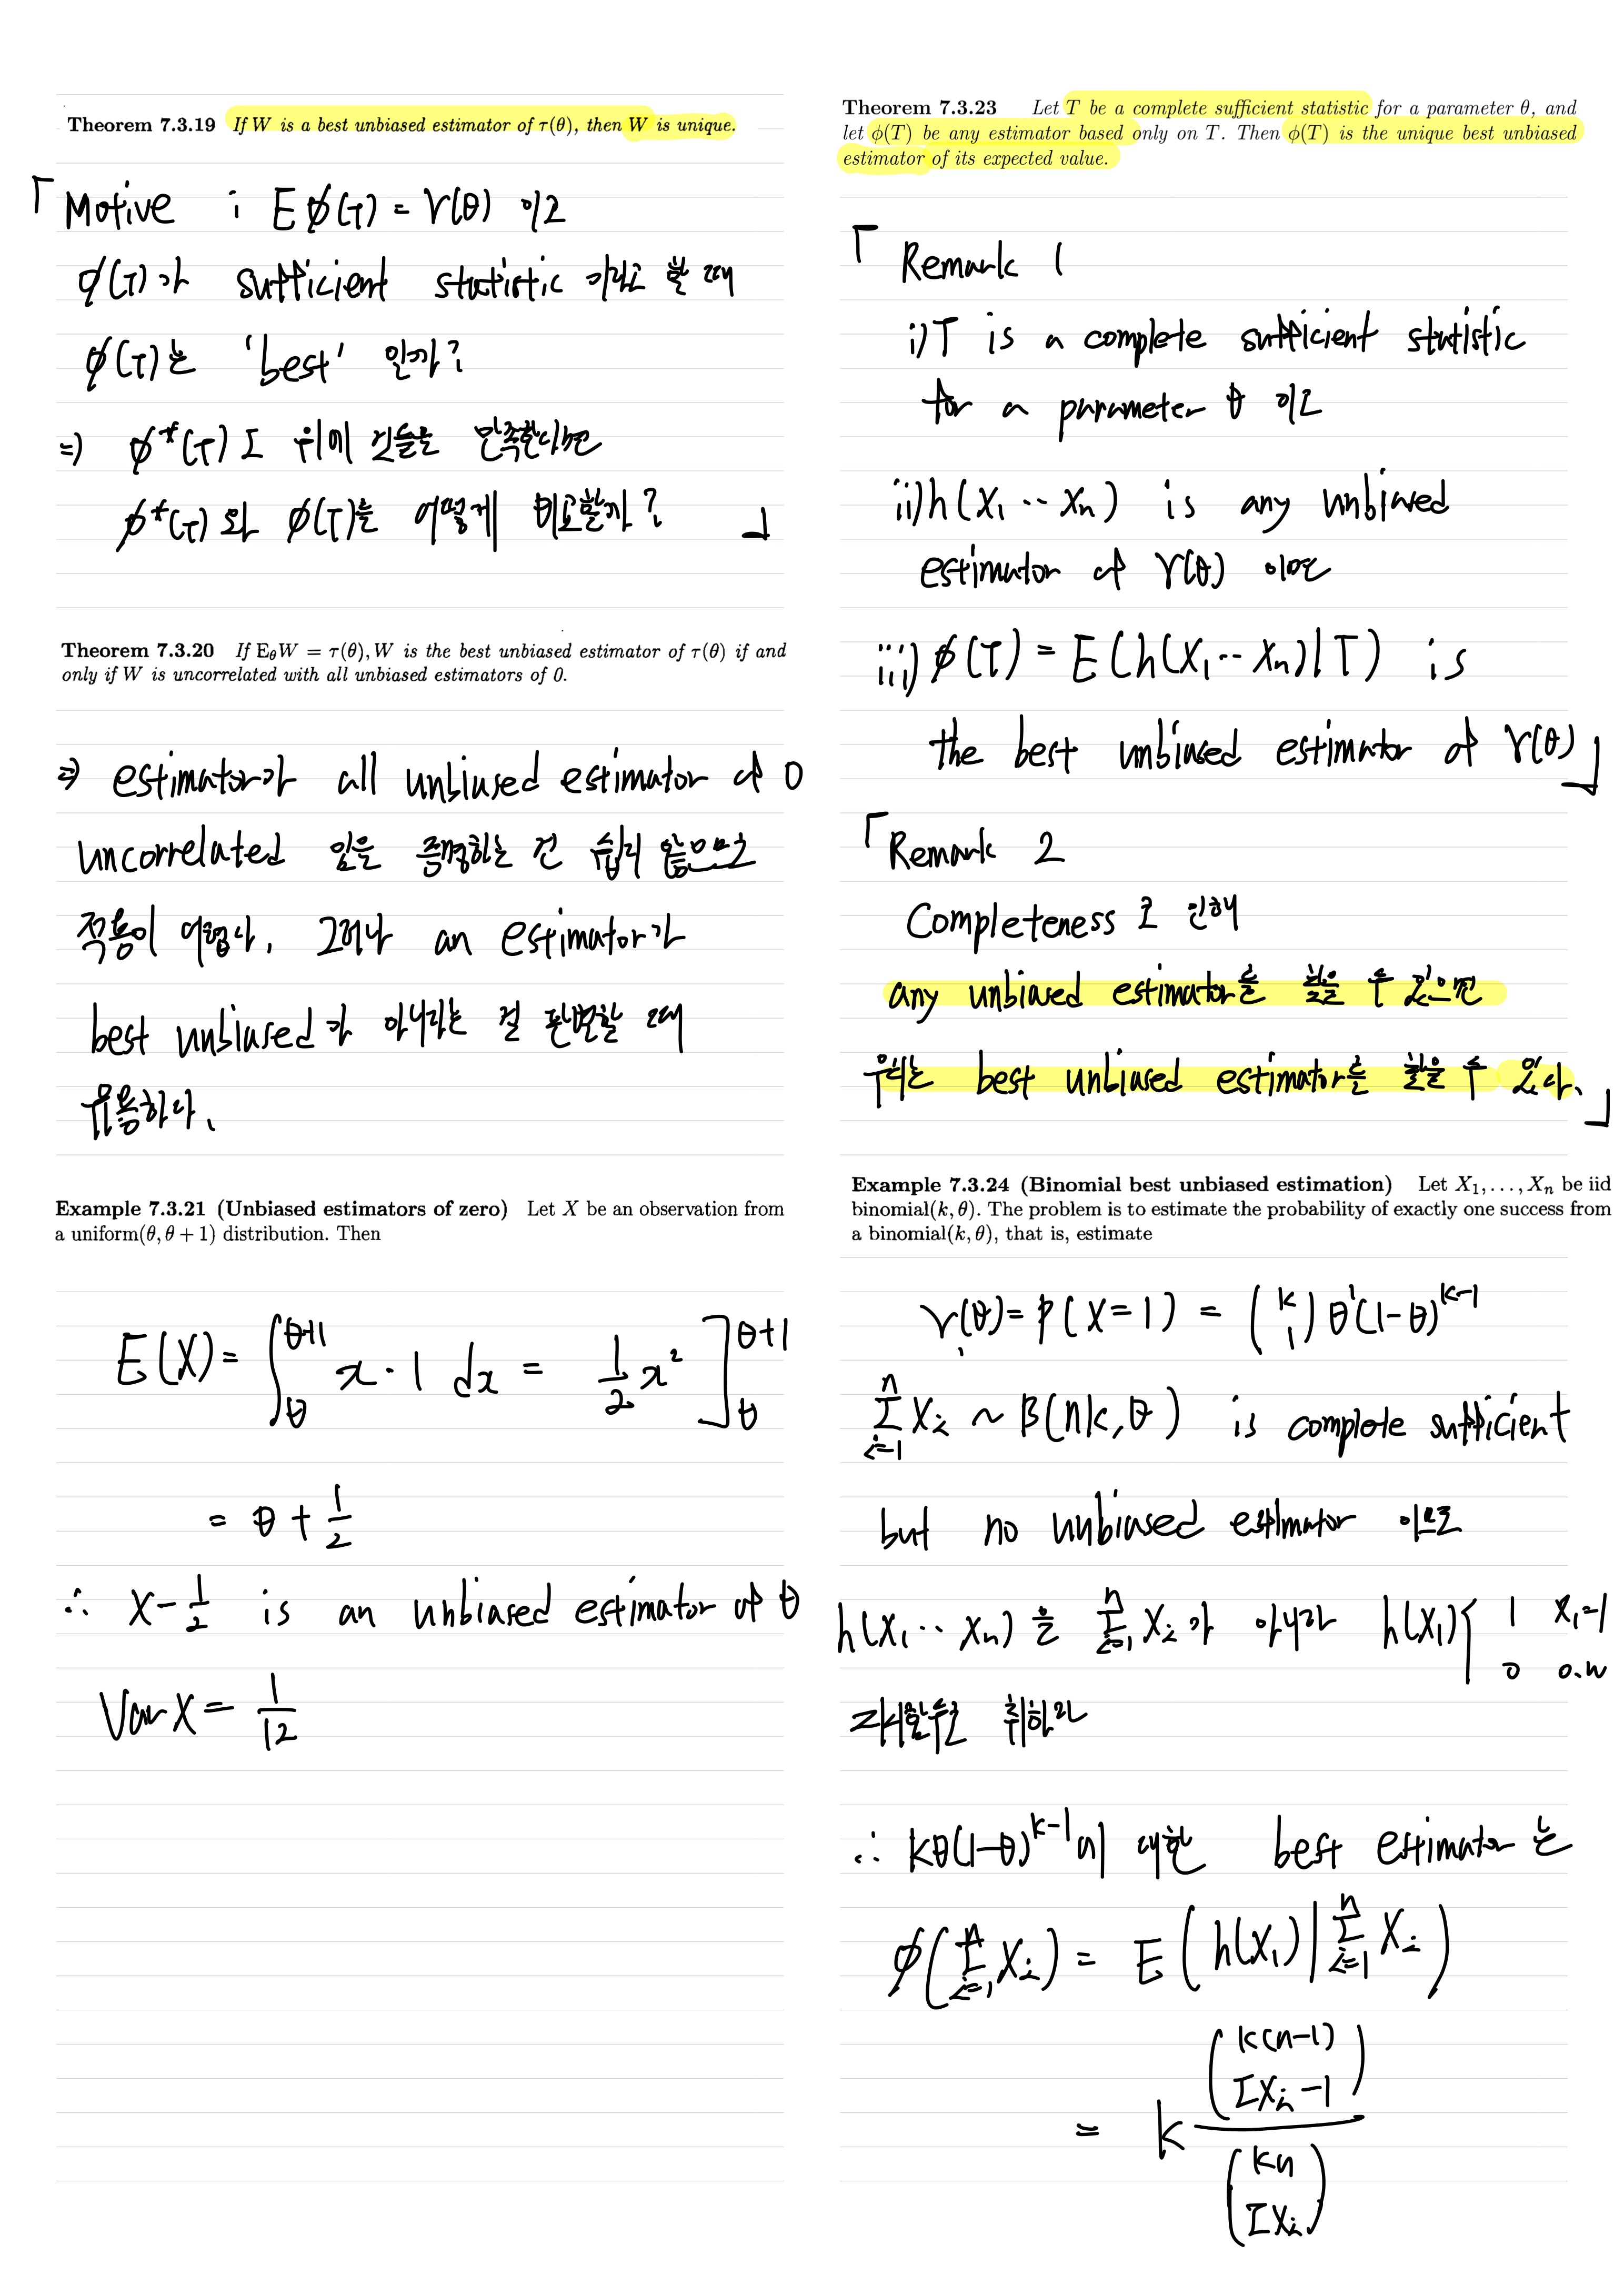 Theorem 7.3.19 If W is a best unbiased estimator of τ(θ), then W is unique.
「Motive ; Eϕ(T) = γ(θ) 이고
ϕ(T)가 sufficient statistic 이라고 할 때
ϕ(T)는 'best' 인가?
⇒) ϕ*(T)도 위에 것들을 만족한다면
ϕ*(T)와 ϕ(T)를 어떻게 비교할까? 」
Theorem 7.3.20 If E_θW = τ(θ), W is the best unbiased estimator of τ(θ) if and
only if W is uncorrelated with all unbiased estimators of 0.
⇒) estimator가 all unbiased estimator of 0
uncorrelated 있을 증명하는 건 쉽지 않으므로
적용이 어렵다. 그러나 an estimator가
best unbiased가 아니라는 걸 판별할 때
유용하다.
Example 7.3.21 (Unbiased estimators of zero) Let X be an observation from
a uniform(θ, θ + 1) distribution. Then
E(X) = ∫_θ^{θ+1} x · 1 dx = 1/2 x² ]_θ^{θ+1}
= θ + 1/2
∴ X − 1/2 is an unbiased estimator of θ
Var X = 1/12
Theorem 7.3.23 Let T be a complete sufficient statistic for a parameter θ, and
let ϕ(T) be any estimator based only on T. Then ϕ(T) is the unique best unbiased
estimator of its expected value.
「Remark 1
i) T is a complete sufficient statistic
for a parameter θ 이고
ii) h(X₁ ·· Xₙ) is any unbiased
estimator of γ(θ) 이면
iii) ϕ(T) = E(h(X₁ ·· Xₙ)|T) is
the best unbiased estimator of γ(θ)」
「Remark 2
Completeness로 인해
any unbiased estimator를 찾을 수 있으면
우리는 best unbiased estimator를 찾을 수 있다.」
Example 7.3.24 (Binomial best unbiased estimation) Let X₁, . . . , Xₙ be iid
binomial(k, θ). The problem is to estimate the probability of exactly one success from
a binomial(k, θ), that is, estimate
γ(θ) = P(X=1) = (k 1) θ¹(1−θ)^{k−1}
∑_{i=1}^n X_i ~ B(nk, θ) is complete sufficient
but no unbiased estimator 이므로
h(X₁ ·· Xₙ)을 ∑_{i=1}^n X_i가 아니라 h(X₁){ 1 X₁=1
0 o.w
취하라
∴ kθ(1−θ)^{k−1}에 대한 best estimator는
ϕ(∑_{i=1}^n X_i) = E(h(X₁)|∑_{i=1}^n X_i)
= k (k(n−1) ΣX_i −1) / (kn ΣX_i)